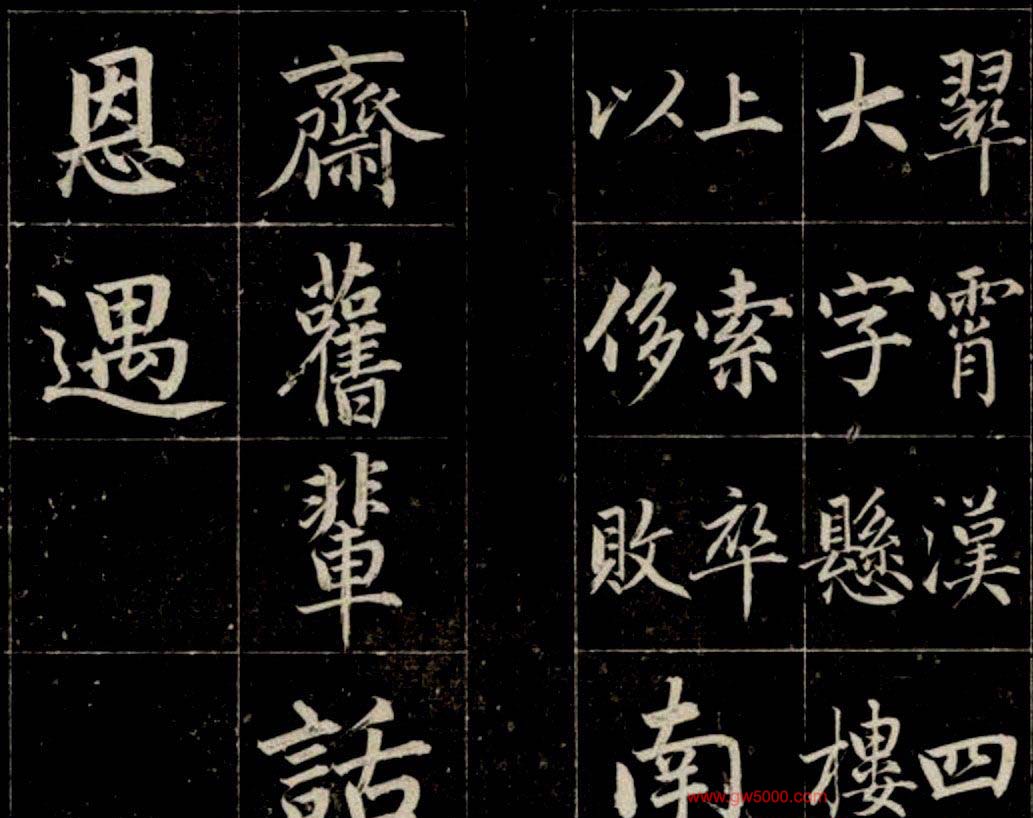 翠霄漢四
大字懸樓
上索卒
以侈敗
南
齋舊輩話
恩遇
www.gw5000.com